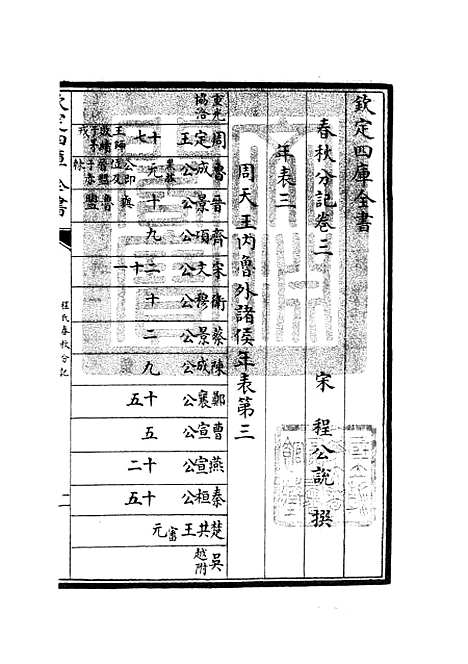 欽定四庫全書
春秋分記卷三
宋 程公說 撰
年表三
周天王內魯外諸侯年表第三
重光協洽
周定王 十七
王師敗績于茅戎
魯成公 元
晉景公 十
與魯盟
齊頃公 九
宋文公 二十一
衛穆公 十
蔡景公 二
陳成公 九
鄭襄公 十五
曹宣公 五
燕宣公 十二
秦桓公 十五
楚共王審 元
吳越附
欽定四庫全書
程氏春秋分記